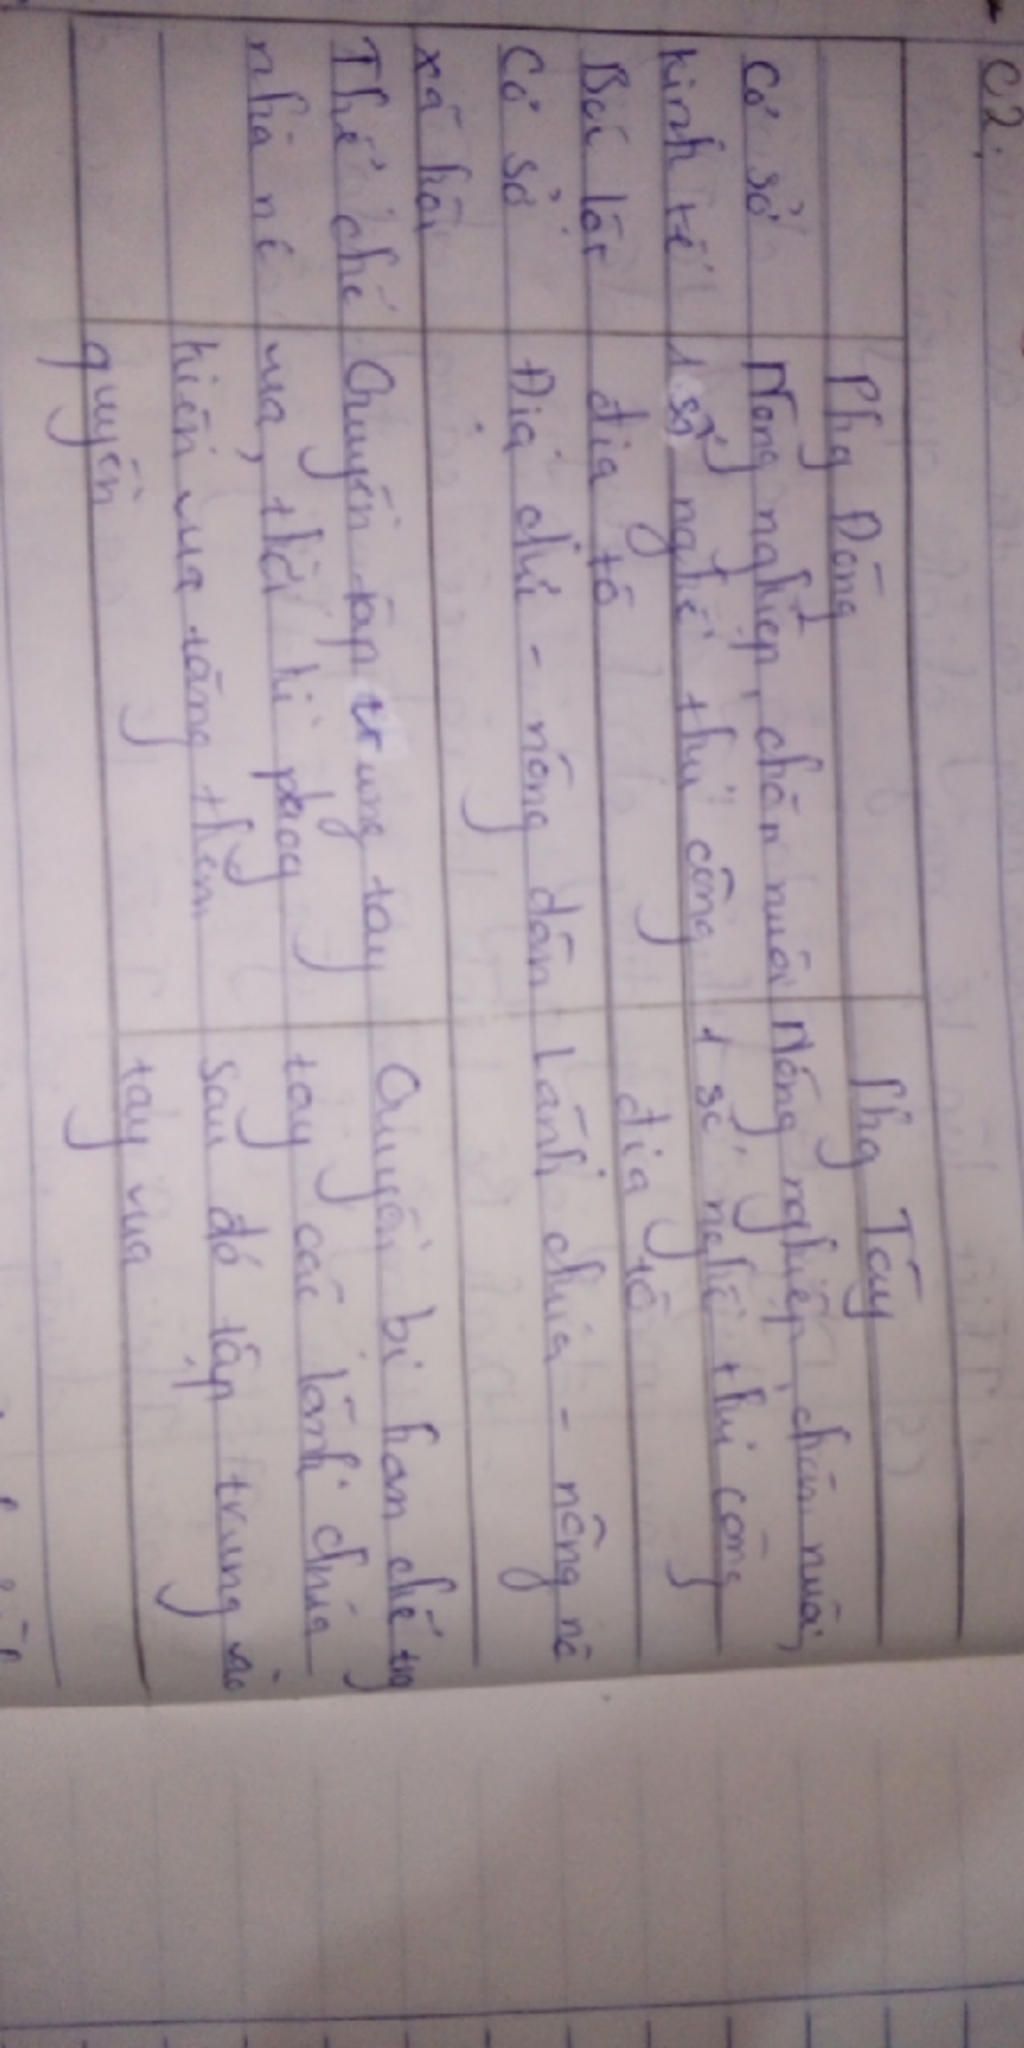 C2.
Phg Đông Phg Tây
Cơ sở Nông nghiệp, chăn nuôi Nông nghiệp, chăn nuôi,
kinh tế 1 số nghề thủ công 1 số nghề thủ công
Bóc lột địa tô địa tô
Cơ sở Địa chủ - nông dân Lãnh chúa - nông nô
xã hội
Thể chế Quyền tập trung tay Quyền bị hạn chế trg
nhà nc vua, thời kì phog tay các lãnh chúa
kiến vua tăng thêm sau đó tập trung vào
quyền tay vua